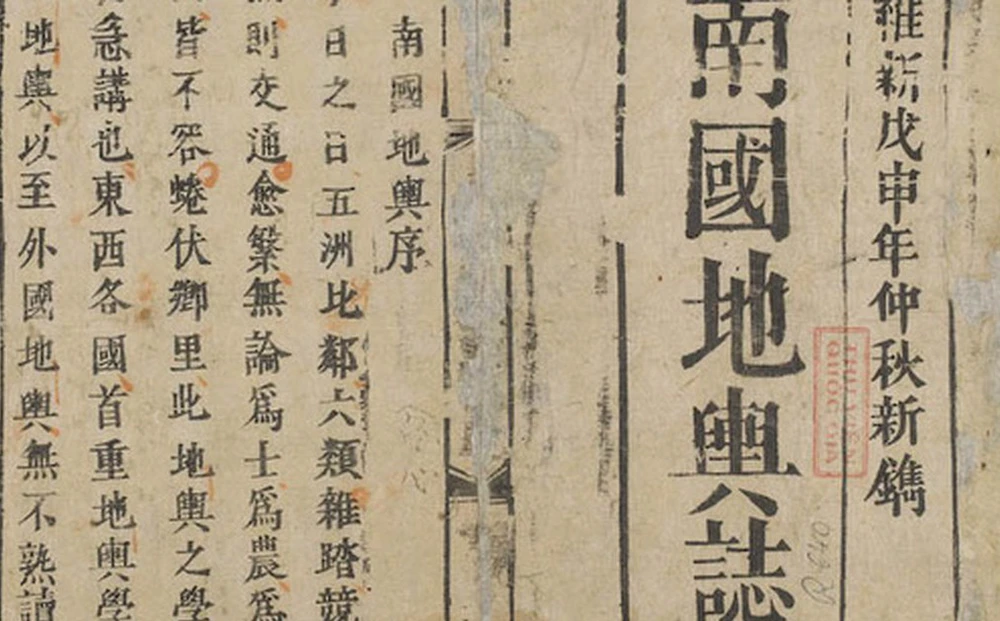 維新戊申年仲秋新鐫
南國地輿誌
THƯ VIỆN
QUỐC GIA
R 640
南國地輿序
日之日五洲比鄰六類雜踏競
則交通愈繁無論爲士爲農爲
皆不容蜷伏鄉里此地輿之學
急講也東西各國首重地輿學
地輿以至外國地輿無不熟讀